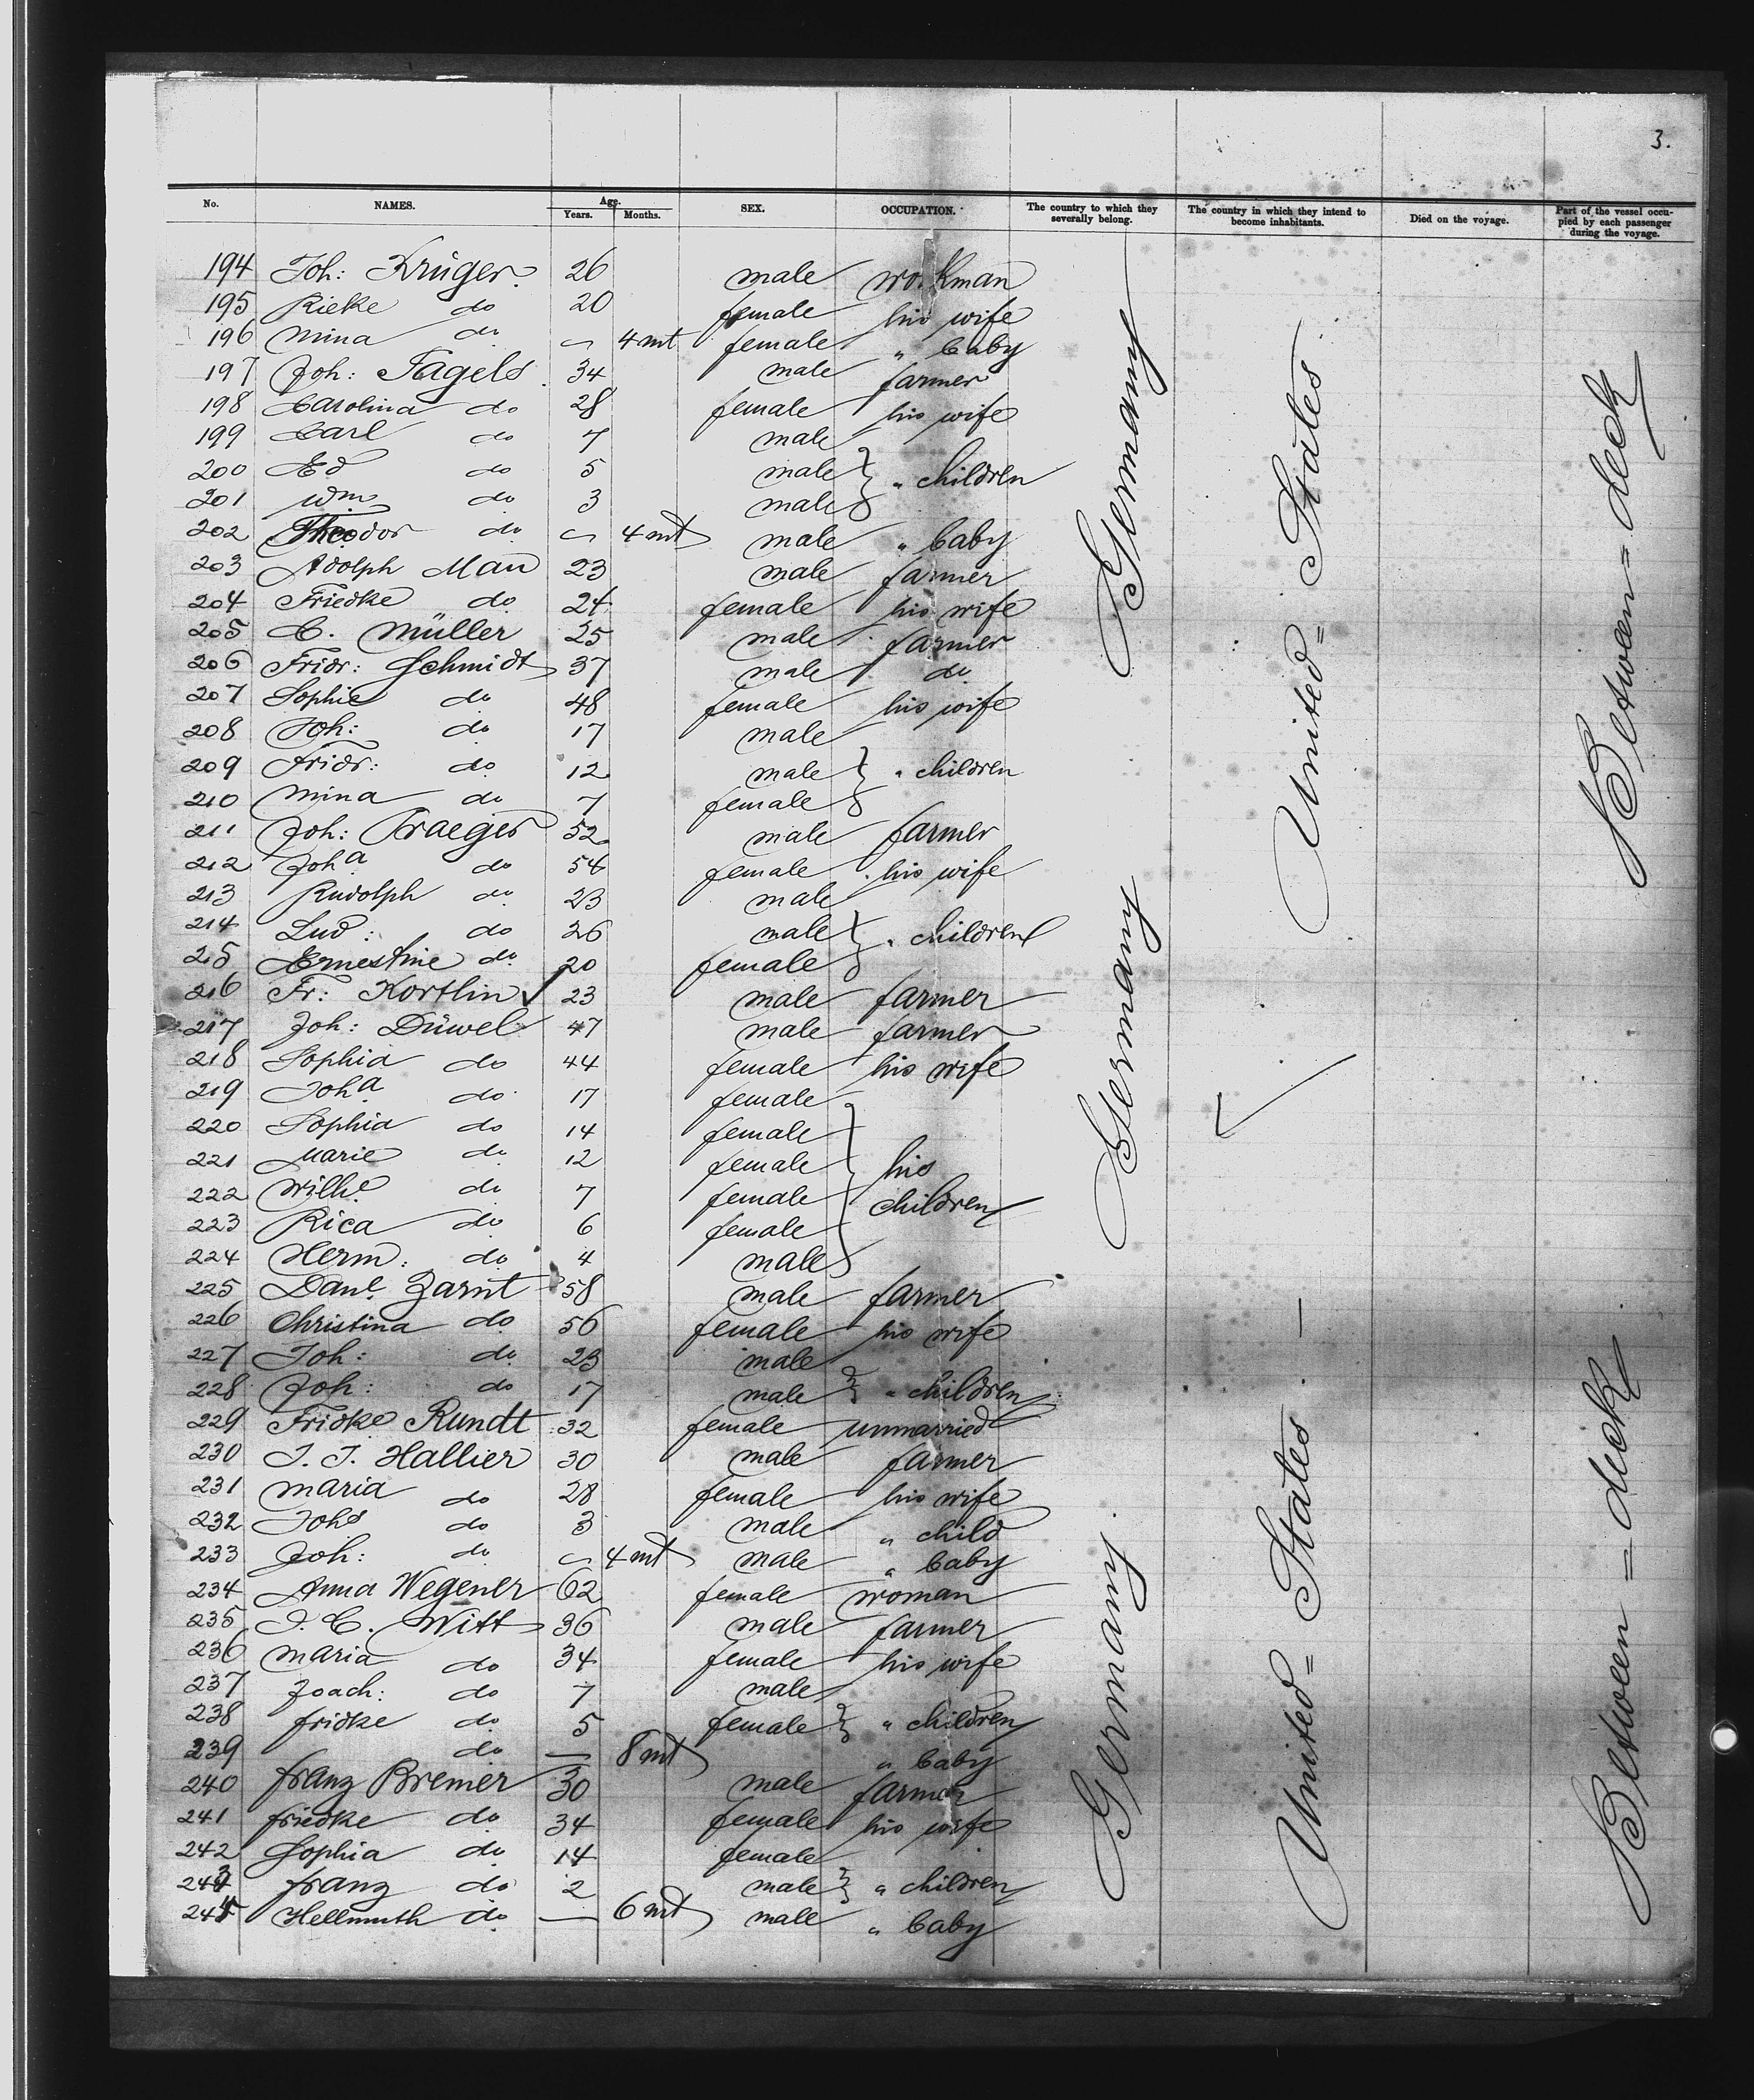 3.
No. NAMES. Age. Years. Months. SEX. OCCUPATION. The country to which they severally belong. The country in which they intend to become inhabitants. Died on the voyage. Part of the vessel occupied by each passenger during the voyage.
194 Joh: Krüger 26 male workman
195 Rieke do 20 female his wife
196 Mina do 4 mt female " baby
197 Joh: Fagels 34 male farmer
198 Carolina do 28 female his wife
199 Carl do 7 male
200 Ed do 5 male " children
201 Wm do 3 male
202 Theodor do 4 mt male " baby
203 Adolph Man 23 male farmer
204 Friedke do 24 female his wife
205 C. Müller 25 male farmer
206 Fridr: Schmidt 37 male do
207 Sophie do 48 female his wife
208 Joh: do 17 male
209 Fridr: do 12 male " children
210 Mina do 7 female
211 Joh: Praeger 52 male farmer
212 Joha do 54 female his wife
213 Rudolph do 23 male
214 Lud: do 26 male " children
215 Ernestine do 20 female
216 Fr: Korthin 23 male farmer
217 Joh: Düwel 47 male farmer
218 Sophia do 44 female his wife
219 Joha do 17 female
220 Sophia do 14 female
221 Marie do 12 female his
222 Wilhe do 7 female children
223 Rica do 6 female
224 Herm: do 4 male
225 Danl. Zarnt 58 male farmer
226 Christina do 56 female his wife
227 Joh: do 23 male
228 Joh: do 17 male " children
229 Fridke Rundt 32 female unmarried
230 J. J. Hallier 30 male farmer
231 Maria do 28 female his wife
232 Johs do 3 male " child
233 Joh: do 4 mt male " baby
234 Anna Wegener 62 female woman
235 J. C. Witt 36 male farmer
236 Maria do 34 female his wife
237 Joach: do 7 male
238 Fridke do 5 female " children
239 do — 8 mt " baby
240 Franz Bremer 30 male farmer
241 Friedke do 34 female his wife
242 Sophia do 14 female
243 Franz do 2 male " children
244 Hellmuth do — 6 mt male " baby
Germany
Germany
Germany
United= States
United= States —
Between= deck
Between = deck